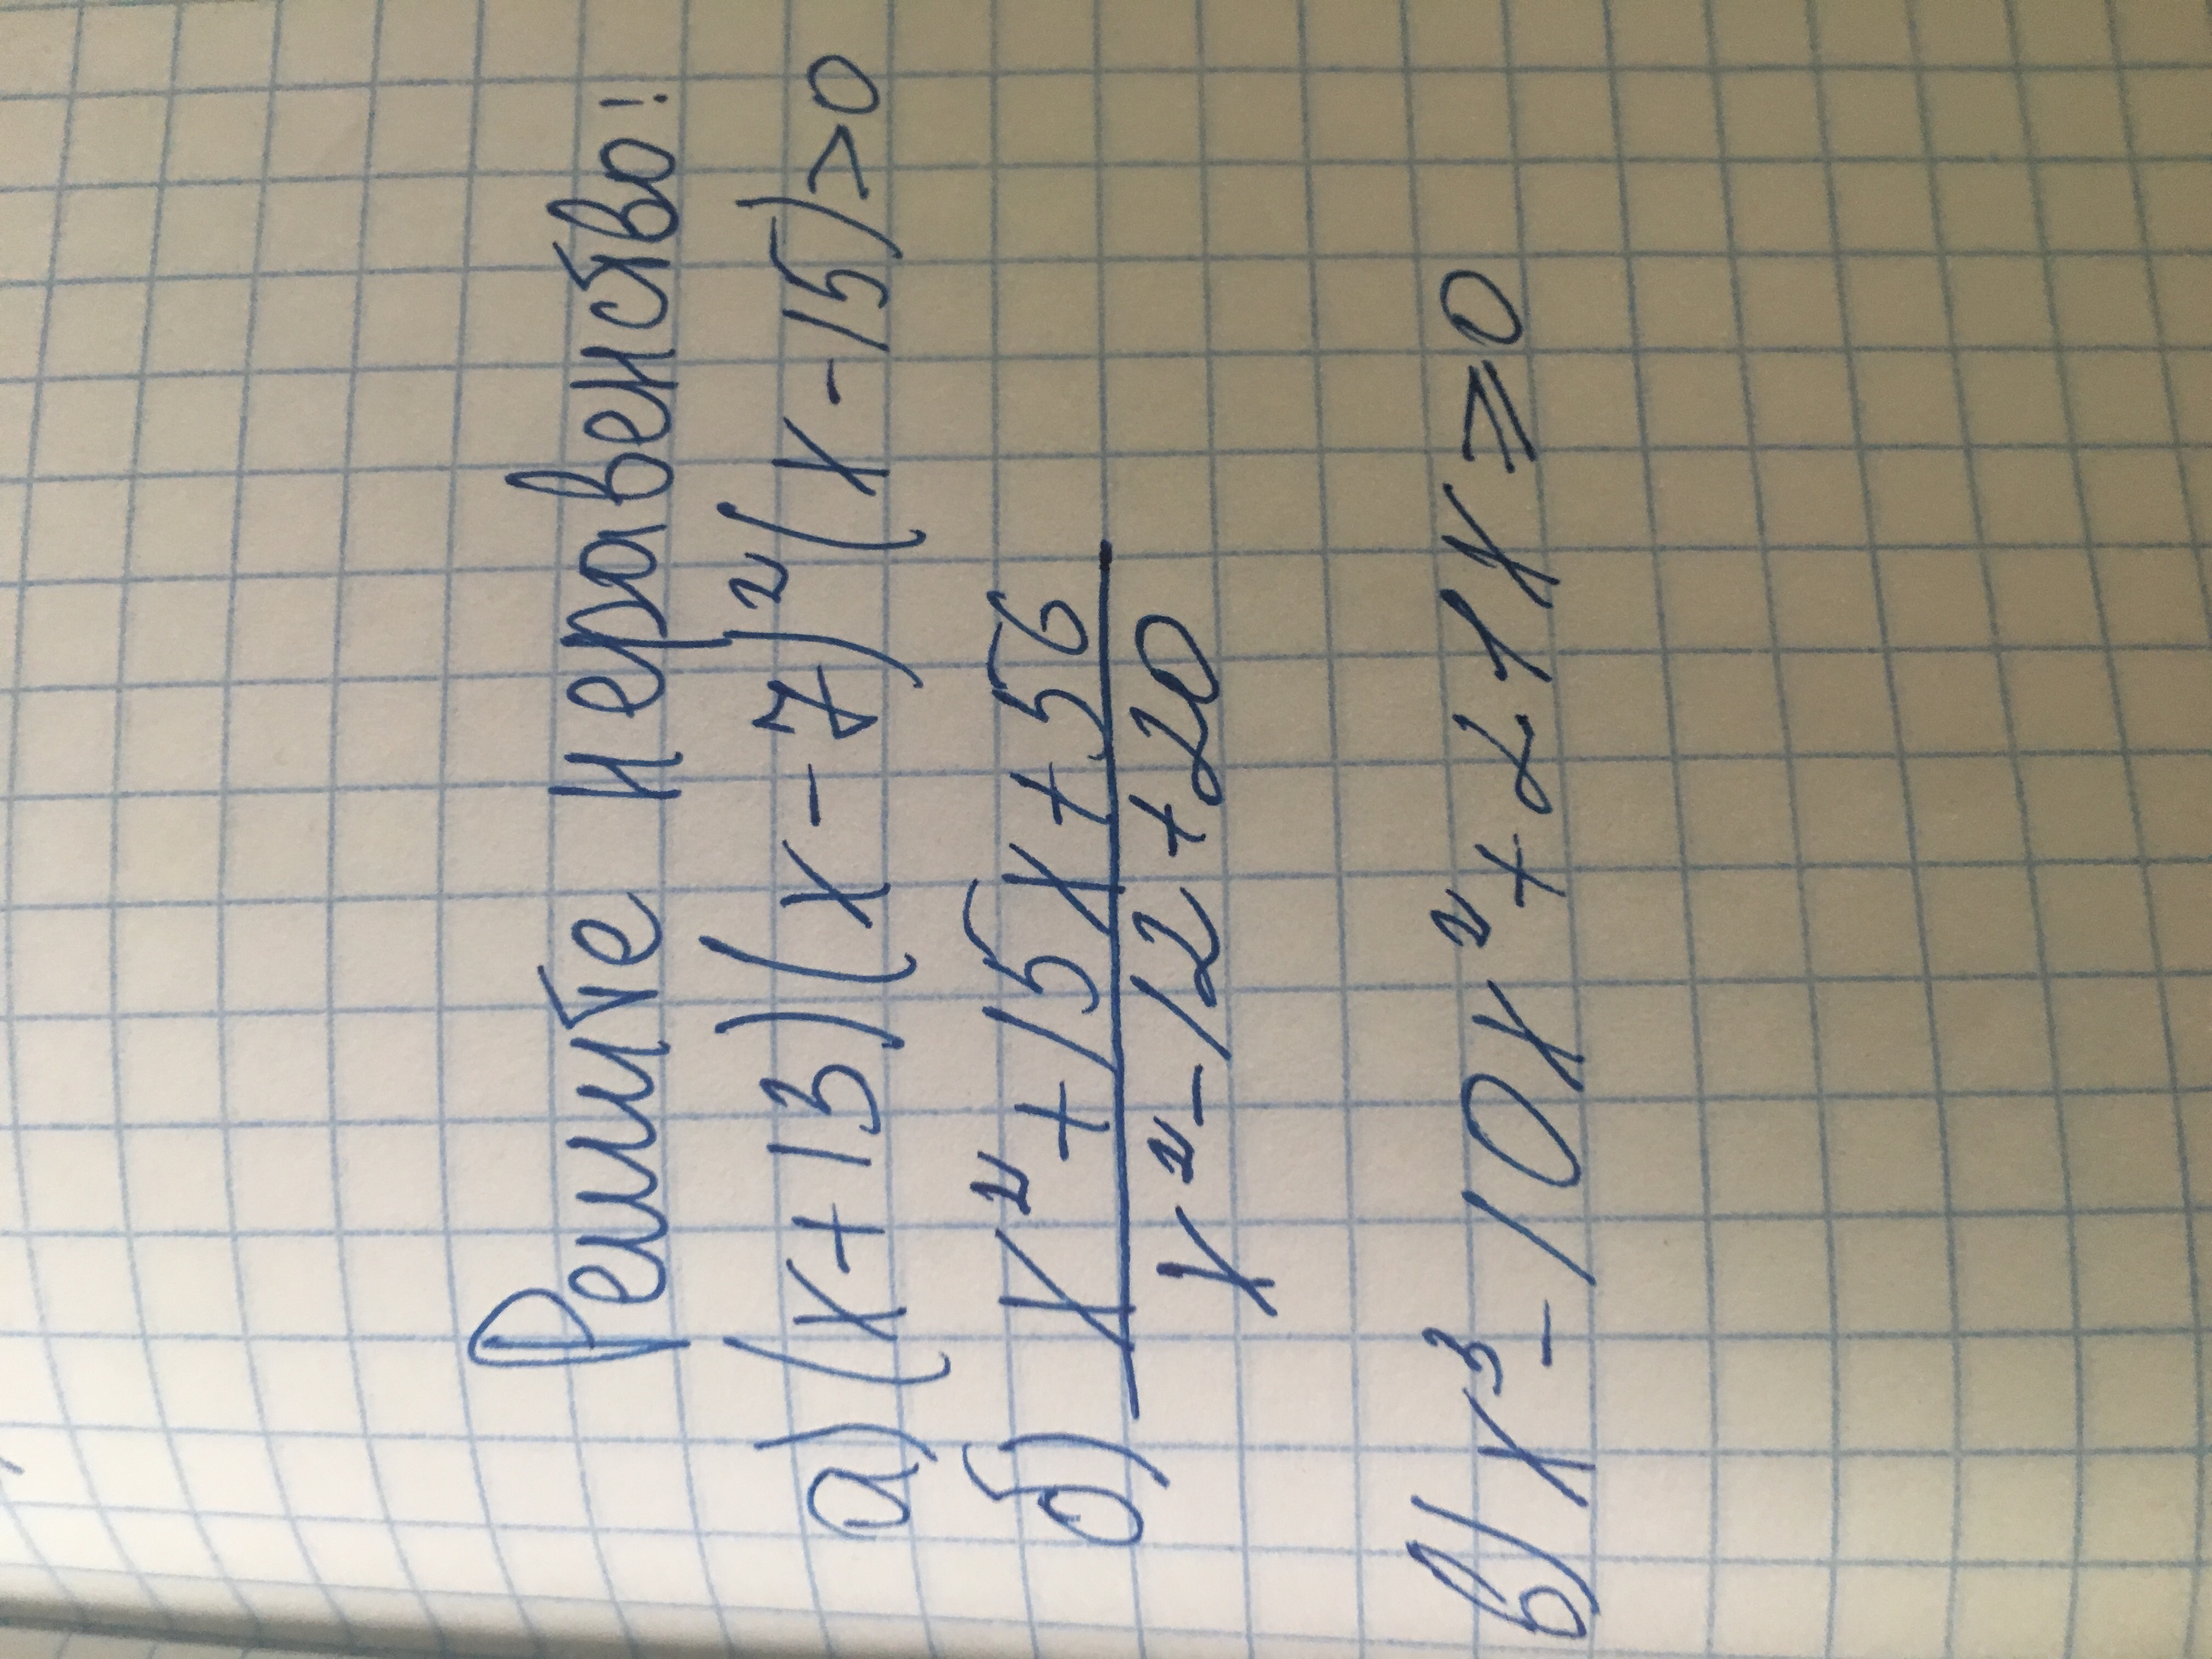 Решите неравенство!
а) (x+13)(x-7)²(x-15)>0
б) x²+15x+56
x²-12+20
в) x³-10x²+21x⩾0